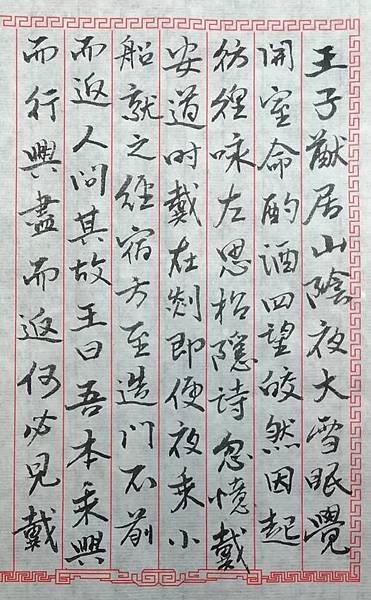 王子猷居山陰夜大雪眠覺
開室命酌酒四望皎然因起
彷徨咏左思招隱詩忽憶戴
安道时戴在剡即便夜乘小
船就之經宿方至造门不前
而返人问其故王曰吾本乘興
而行興盡而返何必見戴